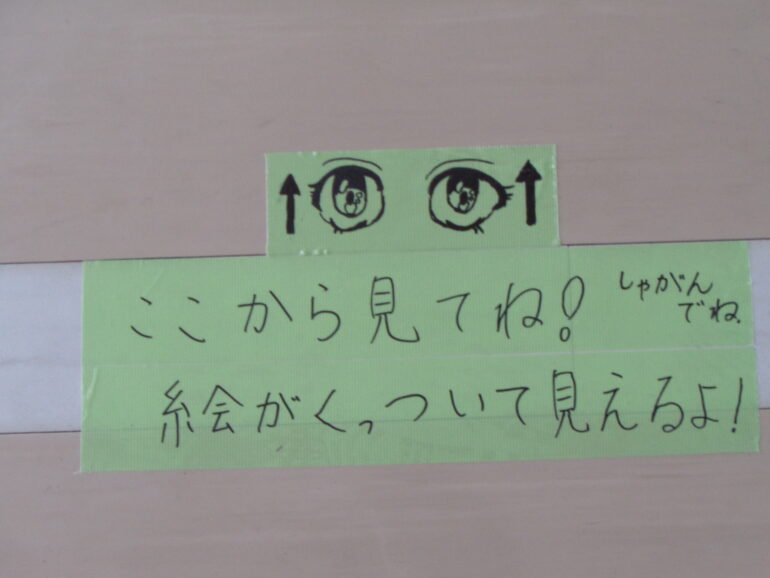 ここから見てね!
しゃがん
でね.
絵がくっついて見えるよ!